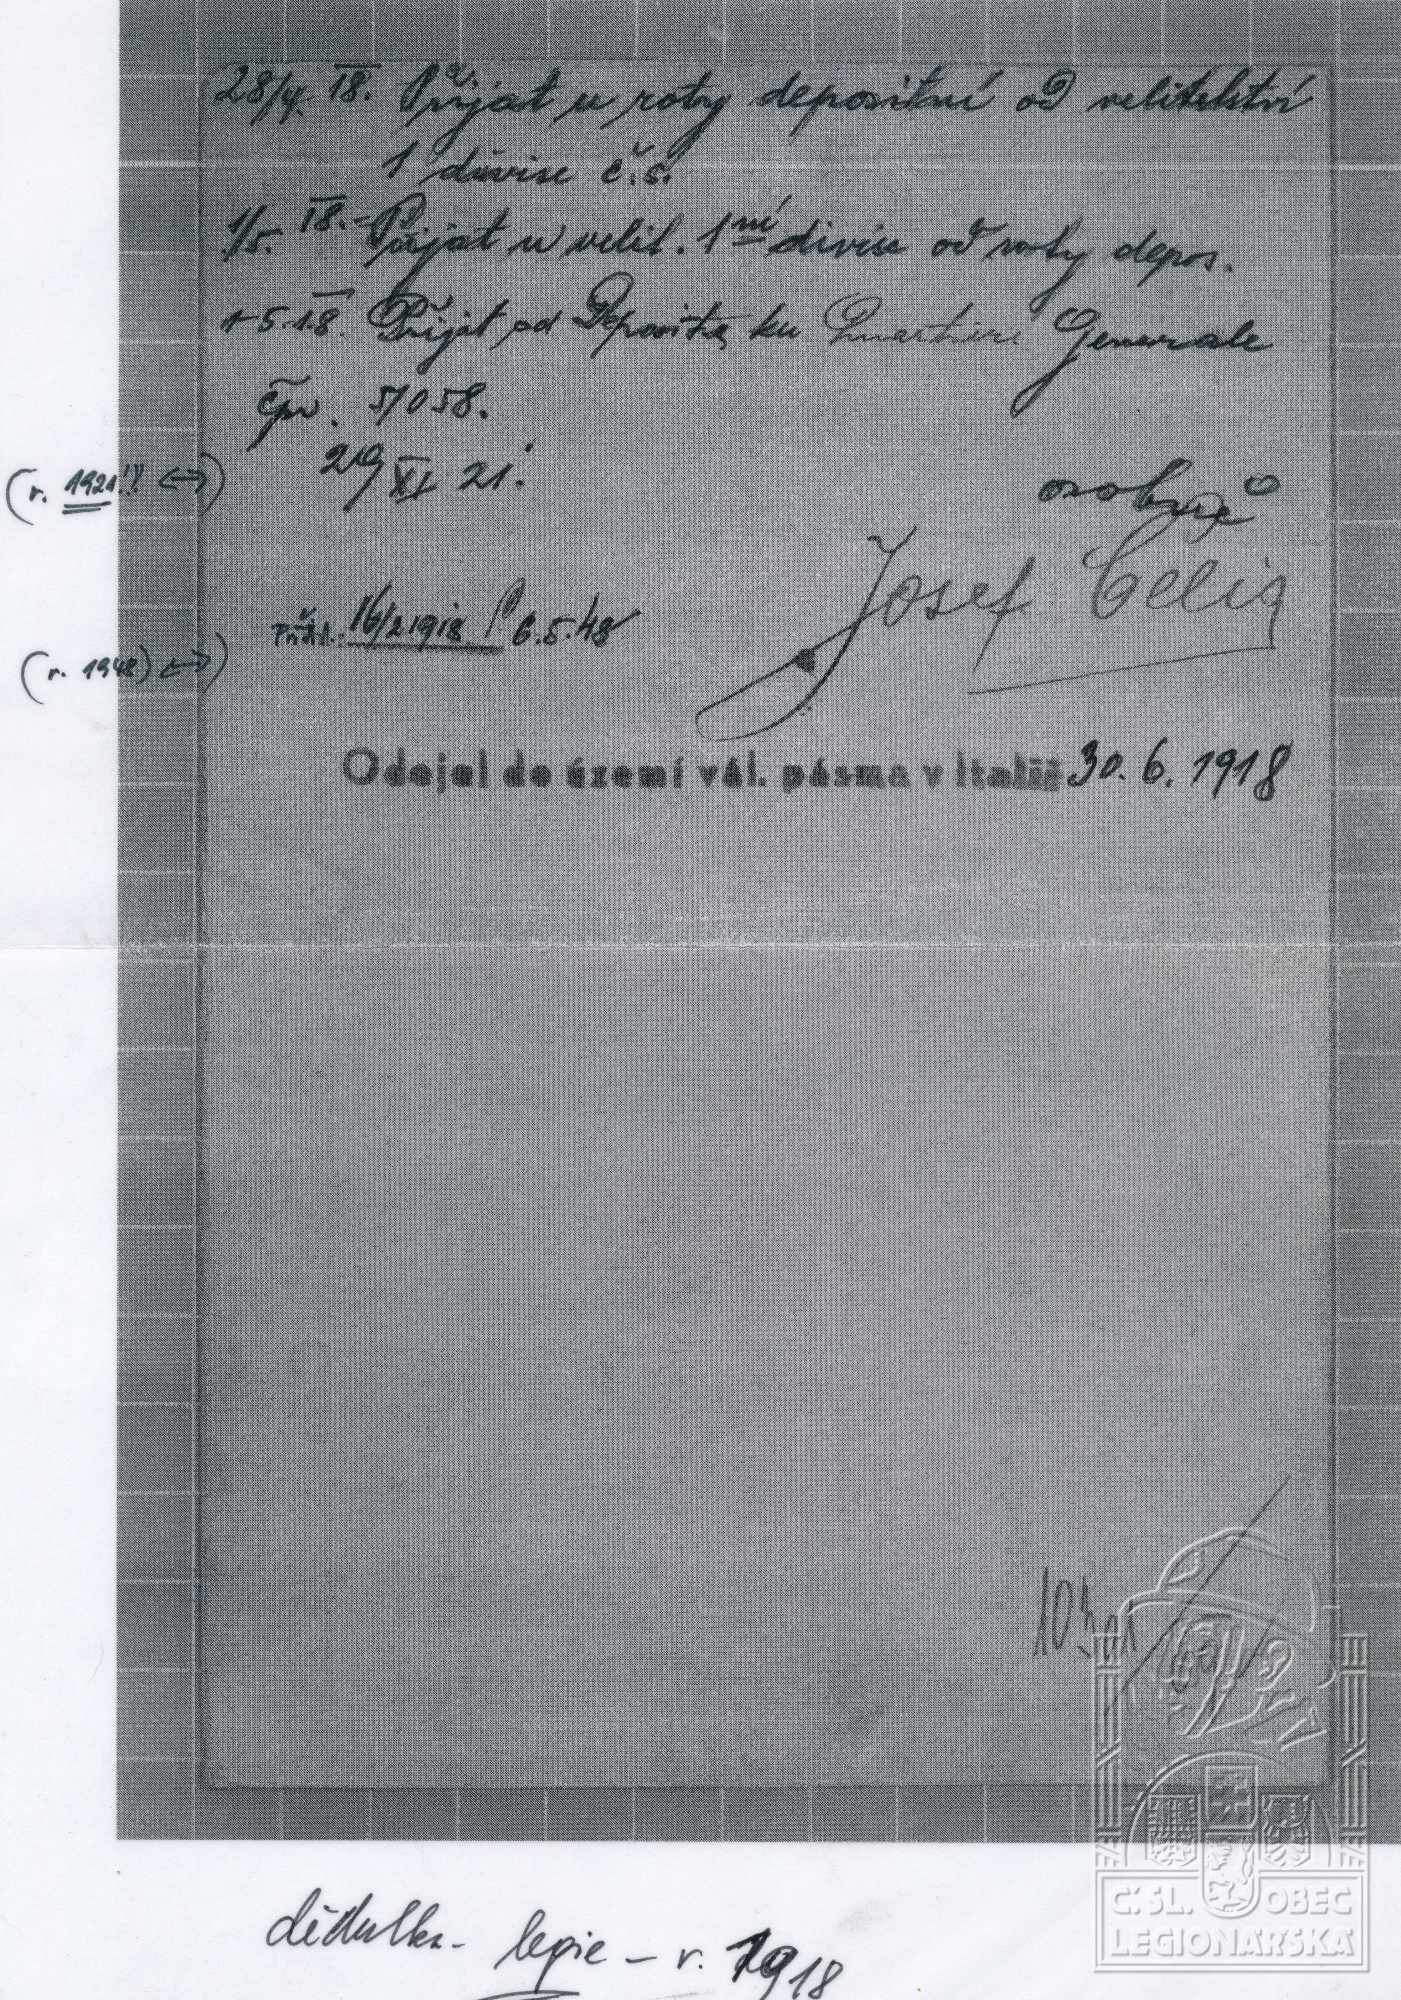 28/4. 18. Přijat u roty depositní od velitelství
1 divise č.s.
1/5. 18. - Přijat u velit. 1ní divise od roty depos.
1-5-18. Přijat od Deposita ku Quartieri Generale
čpr. 51058.
29 XI 21.
(r. 1921!! ↔)
osobně
Josef
Přísl.: 16/2 1918 6.5.48
(r. 1948) ↔)
Odejel do území vál. pásma v Italii 30. 6. 1918
Č.SL. OBEC
LEGIONÁŘSKÁ
dědulka - legie - r. 1918